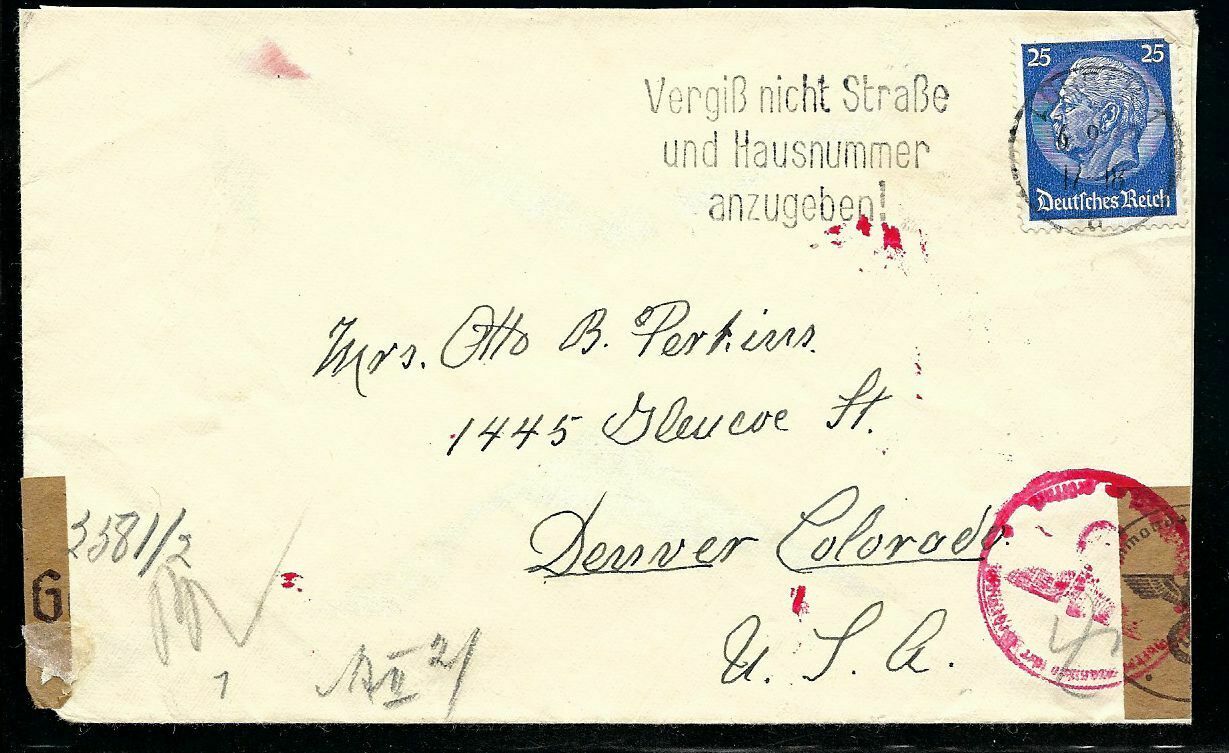 Vergiß nicht Straße
und Hausnummer
anzugeben!
25 25
Deutsches Reich
Mrs. Otto B. Perkins.
1445 Glencoe St.
Denver Colorado.
U. S. A.
3381/2
G
1